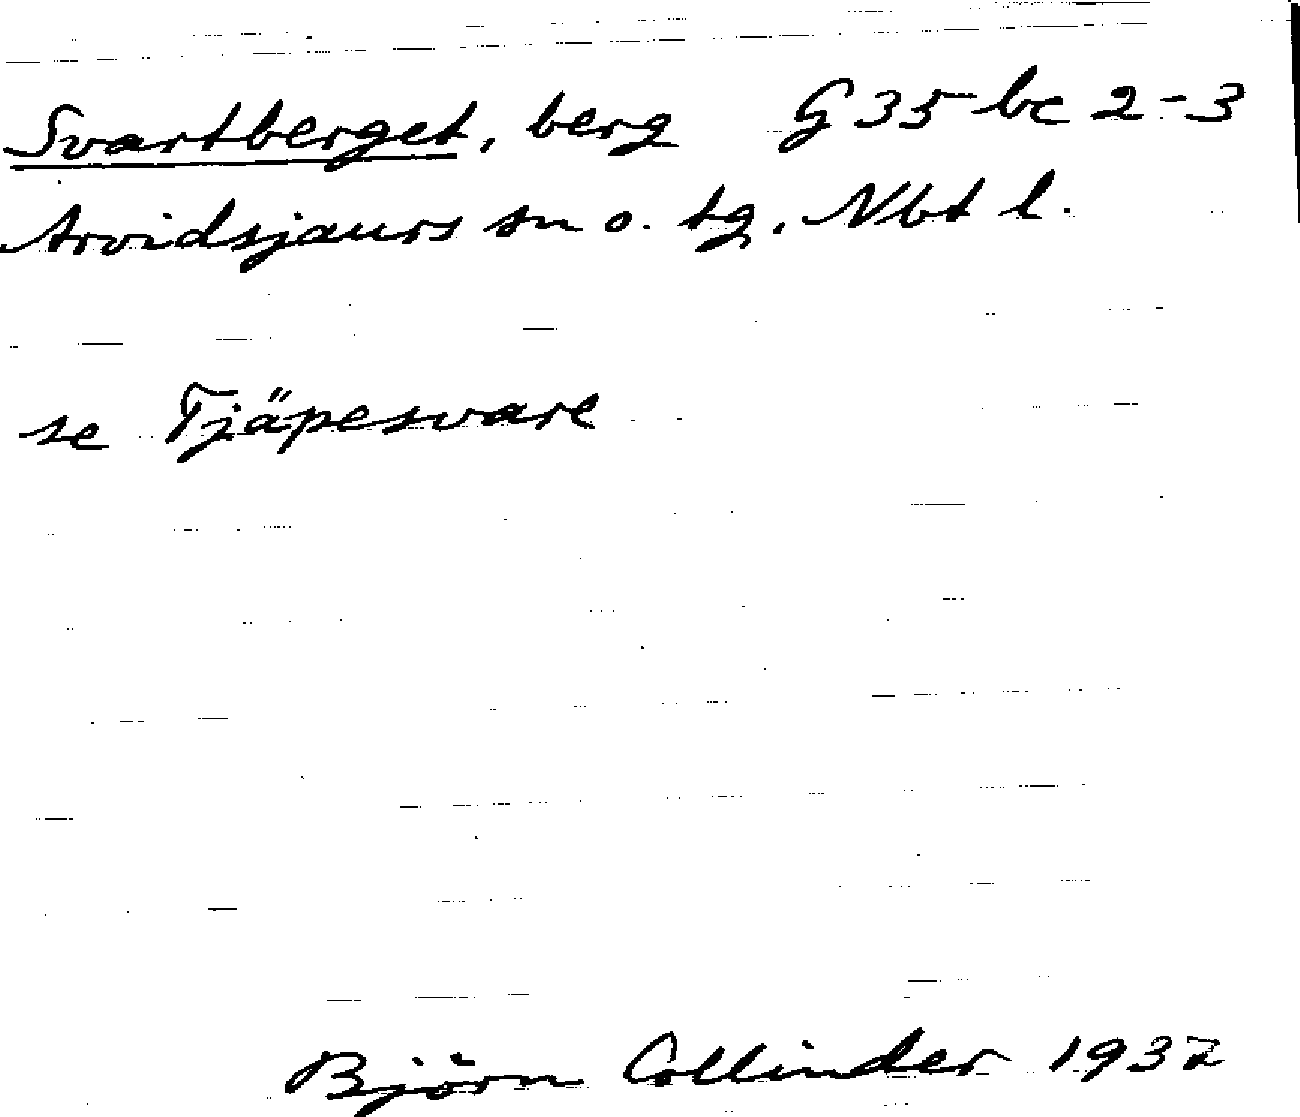 Svartberget, berg G 35 bc 2-3
Arvidsjaurs sn o. tg, Nbt l.
se Tjäpesvare
Björn Collinder 1932